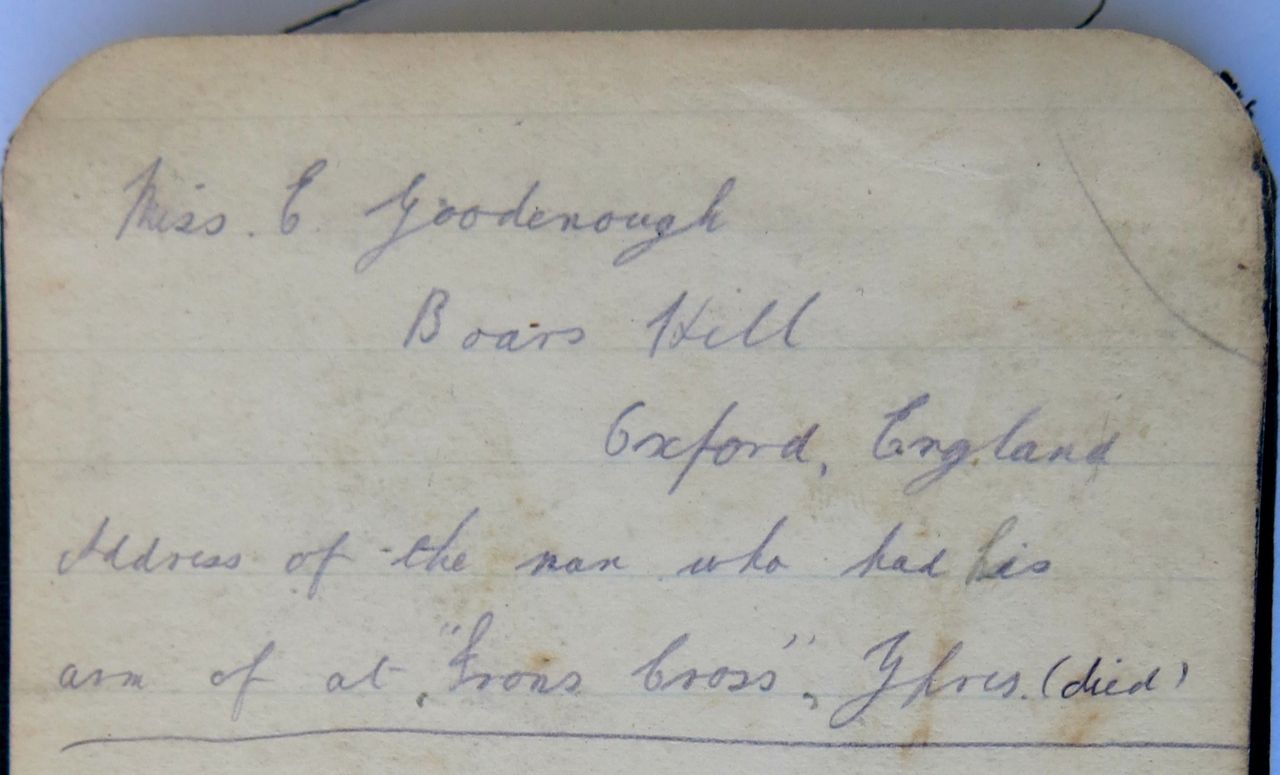 Miss. E Goodenough
Boars Hill
Oxford, England
Address of the man who had his
arm of at, "Irons Cross", Yprès. (died)